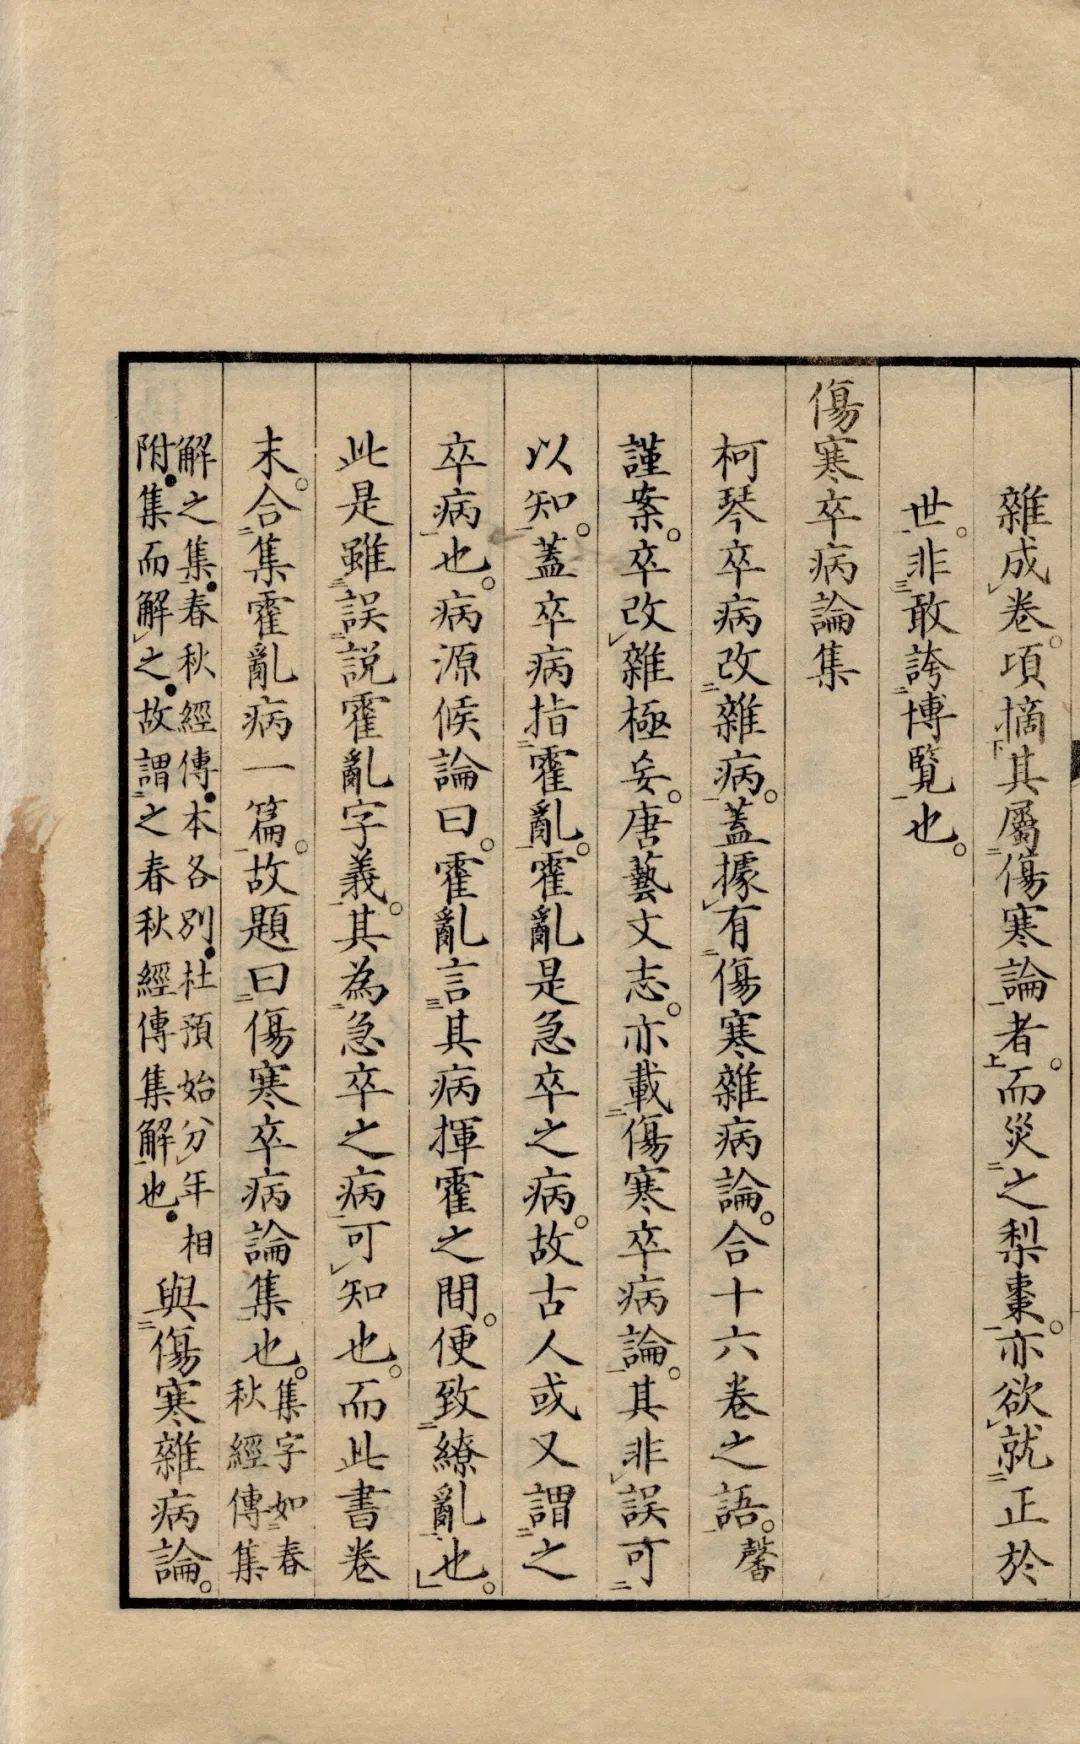 雜成卷。項摘其屬傷寒論者。而災之梨棗。亦欲就正於
世。非敢誇博覽也。
傷寒卒病論集
柯琴卒病改雜病。蓋據有傷寒雜病論。合十六卷之語。馨
謹案。卒改雜極妄。唐藝文志。亦載傷寒卒病論。其非誤可
以知。蓋卒病指霍亂。霍亂是急卒之病。故古人或又謂之
卒病也。病源候論曰。霍亂言其病揮霍之間。便致繚亂也。」
此是雖誤說霍亂字義。其為急卒之病可知也。而此書卷
末。合集霍亂病一篇。故題曰傷寒卒病論集也。集字如春
秋經傳集
解之集。春秋經傳。本各別。杜預始分年相
附。集而解之。故謂之春秋經傳集解也。
與傷寒雜病論。